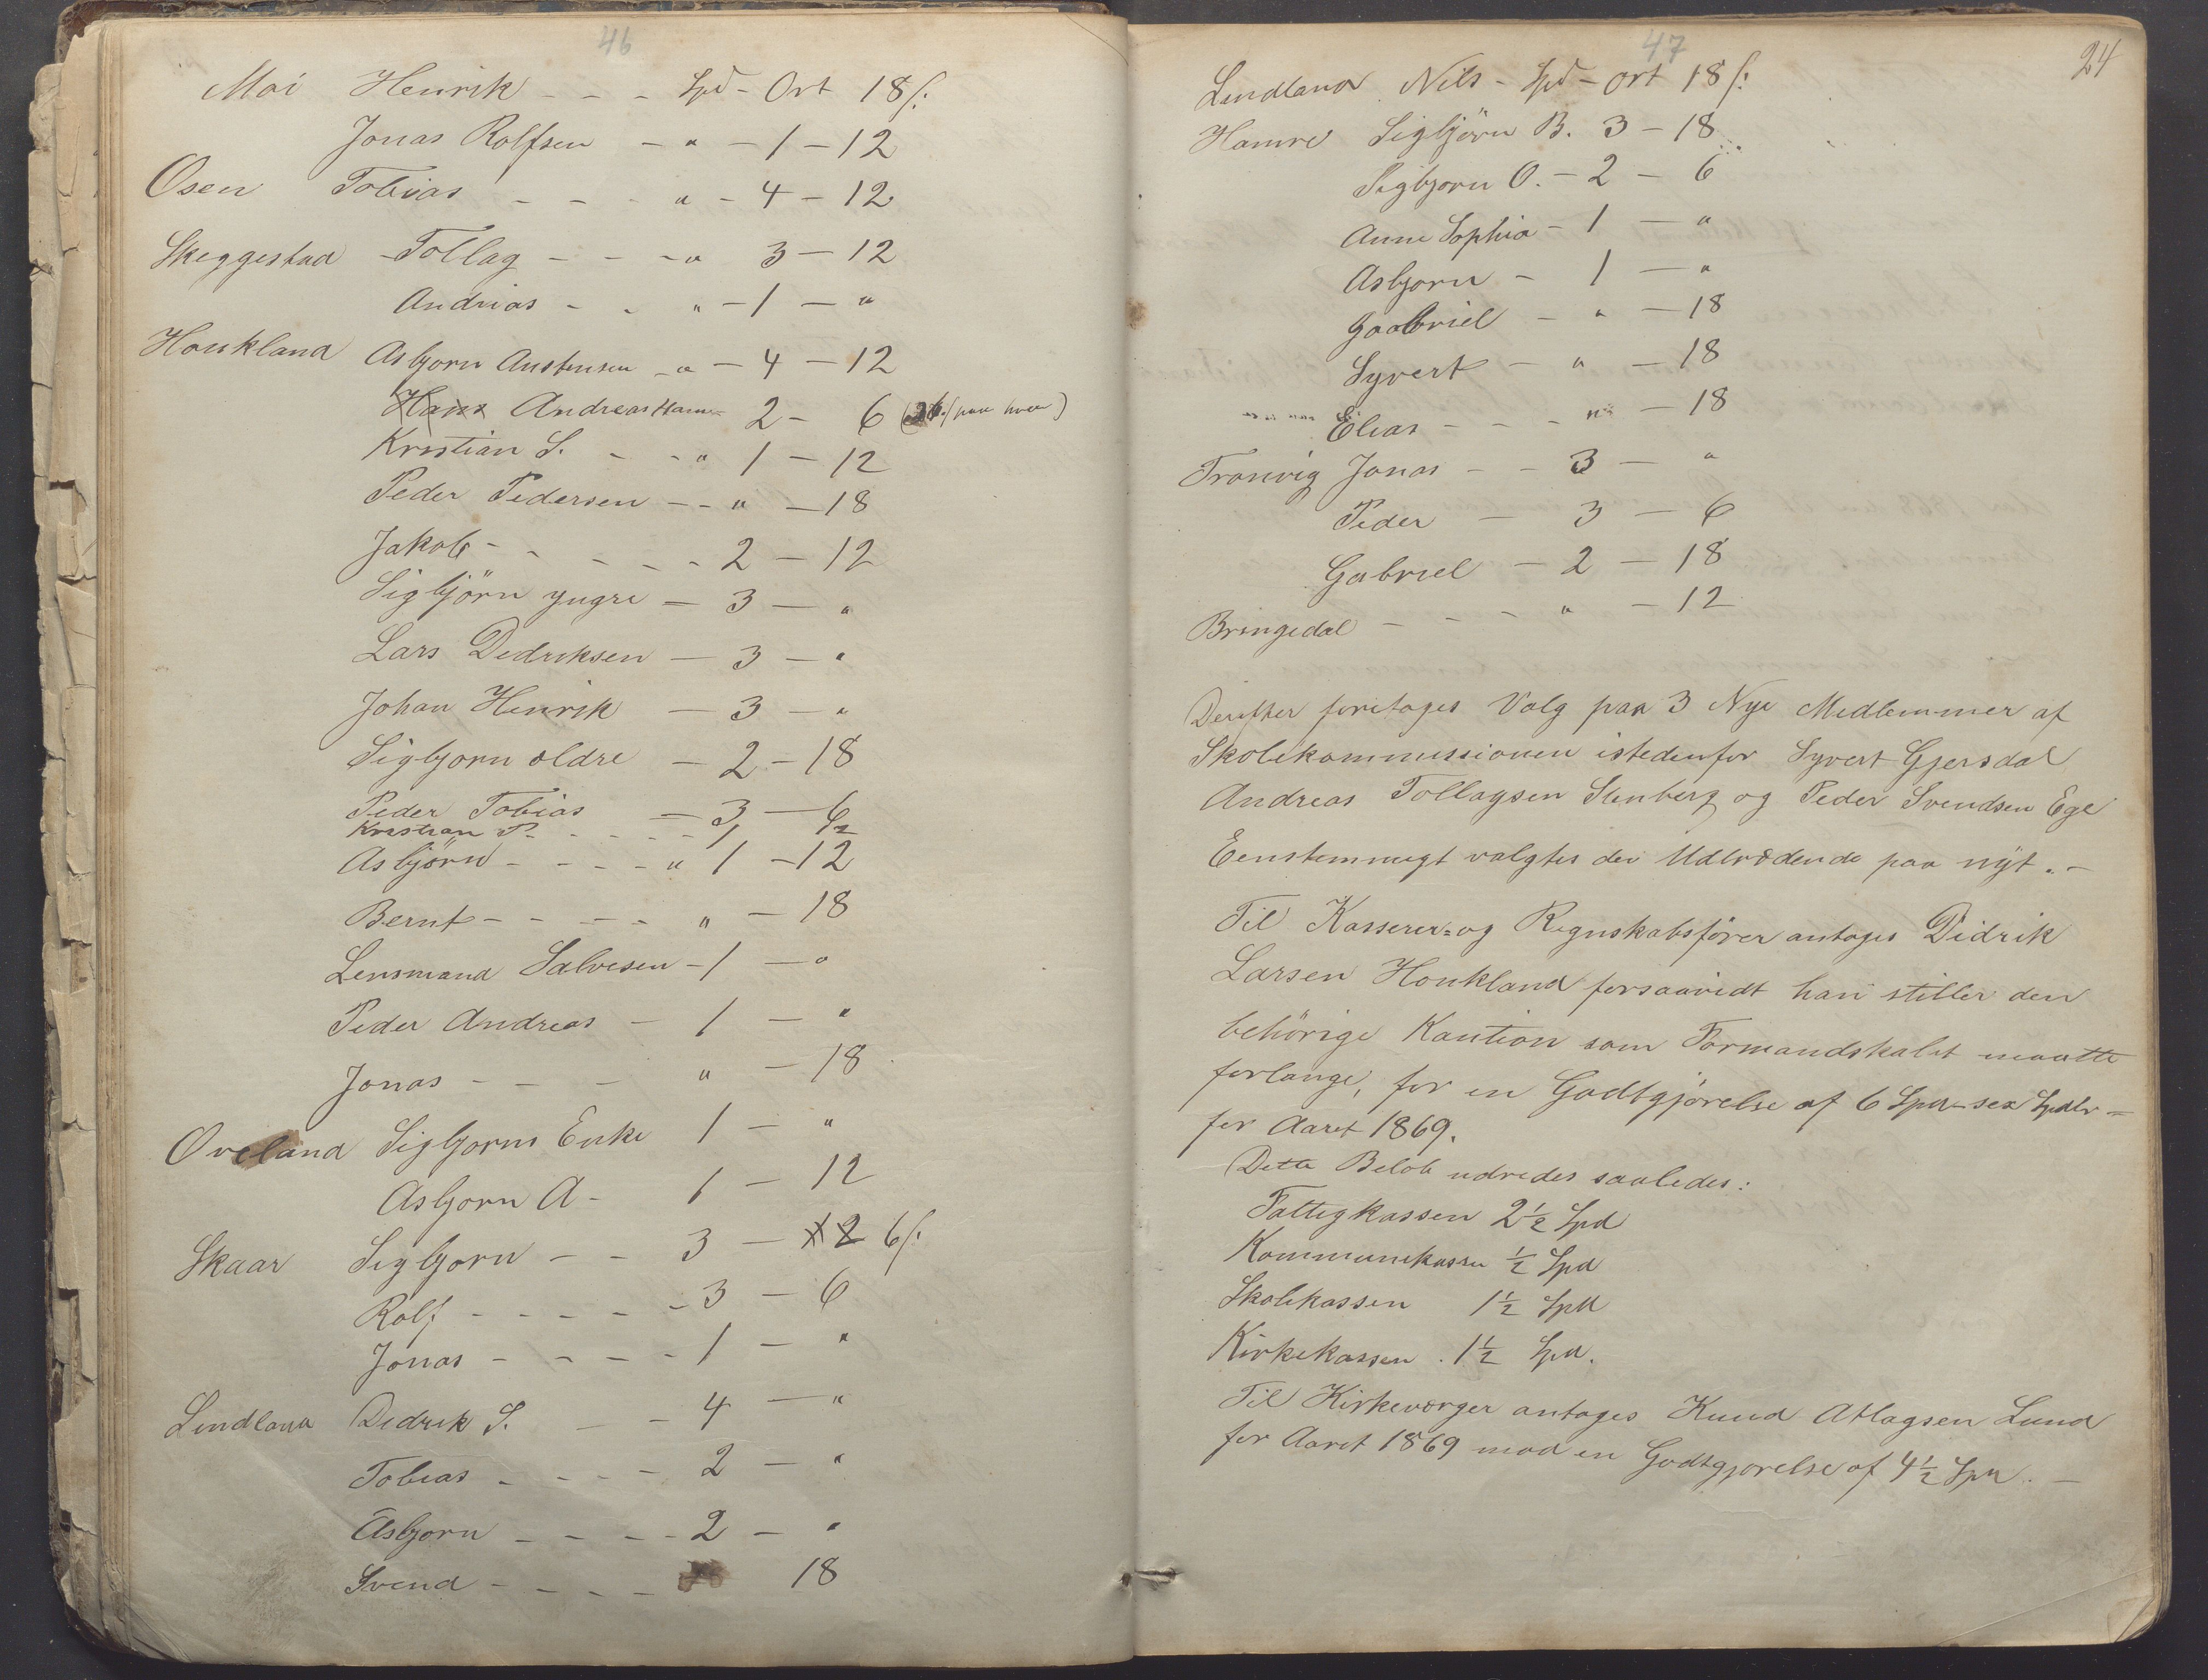 46
Moi Henrik - - - Spd - Ort 18 ſ:
Jonas Rolfsen - " - 1 - 12
Osen Tobias - - - " - 4 - 12
Skeggestad Tollag - - - " 3 - 12
Andrias - - " - 1 - "
Houkland Asbjorn Austensen - " - 4 - 12
Hans Andreas Hans 2 - 6 ( paa hver)
Kristian S. - - " 1 - 12
Peder Pedersen - - " - 18
Jakob - - - - - 2 - 12
Sigbjörn yngre - 3 - "
Lars Dedriksen - 3 - "
Johan Henrik - 3 - "
Sigbjorn ældre - 2 - 18
Peder Tobias - 3 - 6
Kristian P. - - - - 1 12
Asbjörn - - - - " 1 - 12
Bernt - - - - " - 18
Lensmand Salvesen - 1 - "
Peder Andreas - 1 - "
Jonas - - - " - 18
Oveland Sigbjorns Enke 1 - "
Asbjorn A - 1 - 12
Skaar Sigbjorn - - 3 - 12 6 ſ:
Rolf - - - - - 3 - 6
Jonas - - - - 1 - "
Lindland Didrik S. - - 4 - "
Tobias - - - - 2 - "
Asbjorn - - - - 2 - "
Svend - - - - 18
47
24
Lindland Nils - Spd - Ort 18 ſ:
Hamre Sigbjörn B. 3 - 18
Sigbjorn O. - 2 - 6
Anne Sophia - 1 - "
Asbjorn - 1 - "
Gaabriel - " - 18
Syvert - " - 18
Elias - - - " - 18
Tronvig Jonas - - 3 - "
Peder - 3 - 6
Gabriel - 2 - 18
Bringedal - - - " - 12
Derefter foretages Valg paa 3 Nye Medlemmer af
Skolekommissionen istedenfor Syvert Gjersdal
Andreas Tollagsen Stenberg og Peder Svendsen Ege
Eenstemmigt valgtes de Udtrædende paa nÿt. -
Til Kasserer= og Regnskabsfører antages Didrik
Larsen Houkland forsaavidt han stiller den
behörige Kaution som Formandskabet maatte
forlange, for en Godtgjörelse af 6 Spd - sex Spdlr -
for Aaret 1869.
Dette Beløb udredes saaledes:
Fattigkassen 2½ Spd
Kommunekassen ½ Spd
Skolekassen 1½ Spd
Kirkekassen . 1½ Spd.
Til Kirkeværger antages Knud Atlagsen Lund
for Aaret 1869 mod en Godtgjorelse af 4½ Spd. -